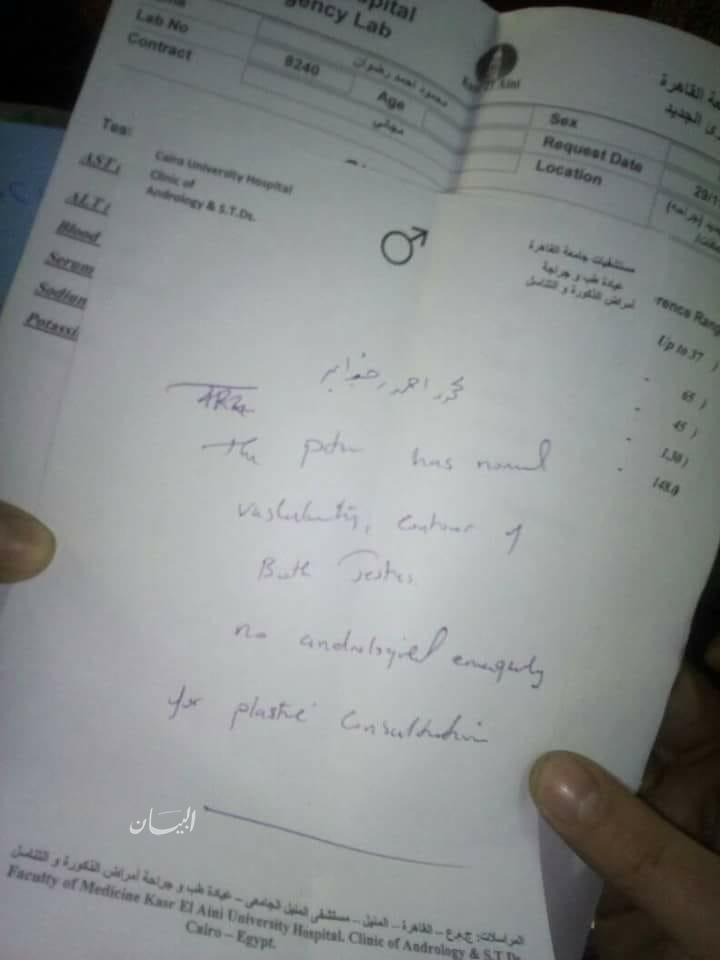 Hospital
gency Lab
Lab No
Contract
8240
محمود احمد رضوان
Age
مجاني
القاهرة
الجديد
Sex
Request Date
Location
29/1
Test
AST
ALT
Blood
Serum
Sodium
Potassi
Cairo University Hospital
Clinic of
Andrology & S.T.Ds.
مستشفيات جامعة القاهرة
عيادة طب و جراحة
أمراض الذكورة و التناسل
rence Rang
Up to 37 )
65 )
45 )
1.30 )
148.0
the has normal
vascularity, contour of
Both Testes
no andrological emergency
for plastic consultation
البيان
المراسلات: ج.م.ع – القاهرة – المنيل – مستشفى المنيل الجامعي – عيادة طب و جراحة أمراض الذكورة و التناسل
Faculty of Medicine Kasr El Aini University Hospital. Clinic of Andrology & S.T.Ds.
Cairo – Egypt.